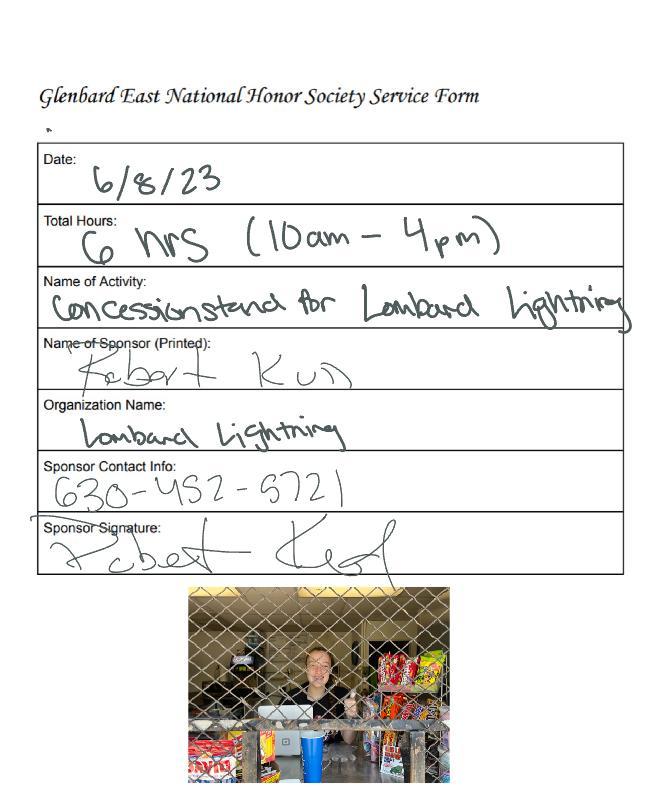 Glenbard East National Honor Society Service Form
Date:
6/8/23
Total Hours:
6 hrs (10am - 4pm)
Name of Activity:
Concession stand for Lombard Lightning
Name of Sponsor (Printed):
Robert
Organization Name:
Lombard Lightning
Sponsor Contact Info:
630-452-5721
Sponsor Signature:
Robert